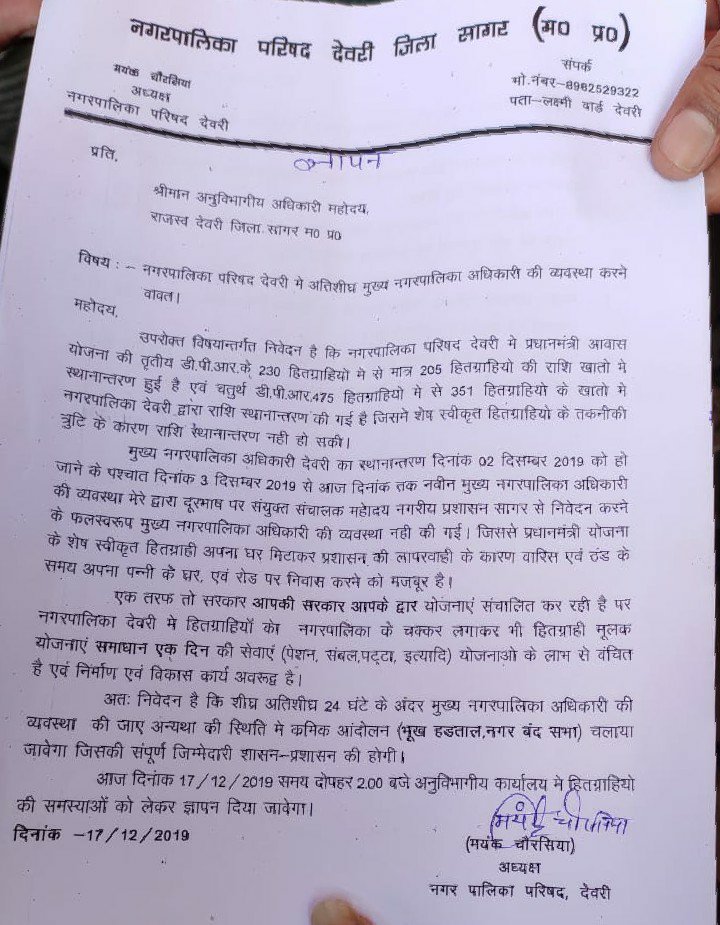 नगरपालिका परिषद देवरी जिला सागर (म० प्र०)
मयंक चौरसिया
अध्यक्ष
नगरपालिका परिषद देवरी
संपर्क
मो.नंबर–8982529322
पता–लक्ष्मी वार्ड देवरी
प्रति,
ज्ञापन
श्रीमान अनुविभागीय अधिकारी महोदय,
राजस्व देवरी जिला सागर म० प्र०
विषय : – नगरपालिका परिषद देवरी मे अतिशीघ्र मुख्य नगरपालिका अधिकारी की व्यवस्था करने
वावत।
महोदय,
उपरोक्त विषयान्तर्गत निवेदन है कि नगरपालिका परिषद देवरी मे प्रधानमंत्री आवास
योजना की तृतीय डी.पी.आर.के 230 हितग्राहियो मे से मात्र 205 हितग्राहियो की राशि खातो मे
स्थानान्तरण हुई है एवं चतुर्थ डी.पी.आर.475 हितग्राहियो मे से 351 हितग्राहियो के खातो मे
नगरपालिका देवरी द्वारा राशि स्थानान्तरण की गई है जिसमे शेष स्वीकृत हितग्राहियो के तकनीकी
त्रुटि के कारण राशि स्थानान्तरण नही हो सकी।
मुख्य नगरपालिका अधिकारी देवरी का स्थानान्तरण दिनांक 02 दिसम्बर 2019 को हो
जाने के पश्चात दिनांक 3 दिसम्बर 2019 से आज दिनांक तक नवीन मुख्य नगरपालिका अधिकारी
की व्यवस्था मेरे द्वारा दूरभाष पर संयुक्त संचालक महोदय नगरीय प्रशासन सागर से निवेदन करने
के फलस्वरूप मुख्य नगरपालिका अधिकारी की व्यवस्था नही की गई। जिससे प्रधानमंत्री योजना
के शेष स्वीकृत हितग्राही अपना घर मिटाकर प्रशासन की लापरवाही के कारण वारिस एवं ठंड के
समय अपना पन्नी के घर, एवं रोड पर निवास करने को मजबूर है।
एक तरफ तो सरकार आपकी सरकार आपके द्वार योजनाएं संचालित कर रही है पर
नगरपालिका देवरी मे हितग्राहियों को नगरपालिका के चक्कर लगाकर भी हितग्राही मूलक
योजनाएं समाधान एक दिन की सेवाएं (पेशन, संबल,पट्टा, इत्यादि) योजनाओ के लाभ से वंचित
है एवं निर्माण एवं विकास कार्य अवरूद्व है।
अतः निवेदन है कि शीघ्र अतिशीघ्र 24 घंटे के अंदर मुख्य नगरपालिका अधिकारी की
व्यवस्था की जाए अन्यथा की स्थिति मे कमिक आंदोलन (भूख हडताल,नगर बंद सभा) चलाया
जावेगा जिसकी संपूर्ण जिम्मेदारी शासन–प्रशासन की होगी।
आज दिनांक 17/12/2019 समय दोपहर 2.00 बजे अनुविभागीय कार्यालय मे हितग्राहियो
की समस्याओं को लेकर ज्ञापन दिया जावेगा।
दिनांक -17/12/2019
मयंक चौरसिया
(मयंक चौरसिया)
अध्यक्ष
नगर पालिका परिषद, देवरी